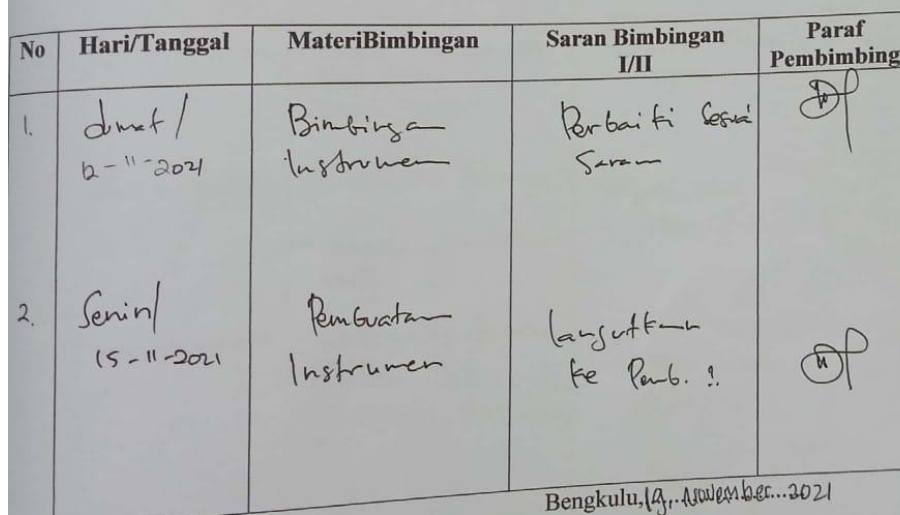 No Hari/Tanggal MateriBimbingan Saran Bimbingan I/II Paraf Pembimbing
1. Jumat / 12-11-2021 Bimbingan Instrumen Perbaiki Sesuai Saran
2. Senin/ 15-11-2021 Pembuatan Instrumen Lanjutkan ke Pemb.
Bengkulu, 19, November...2021